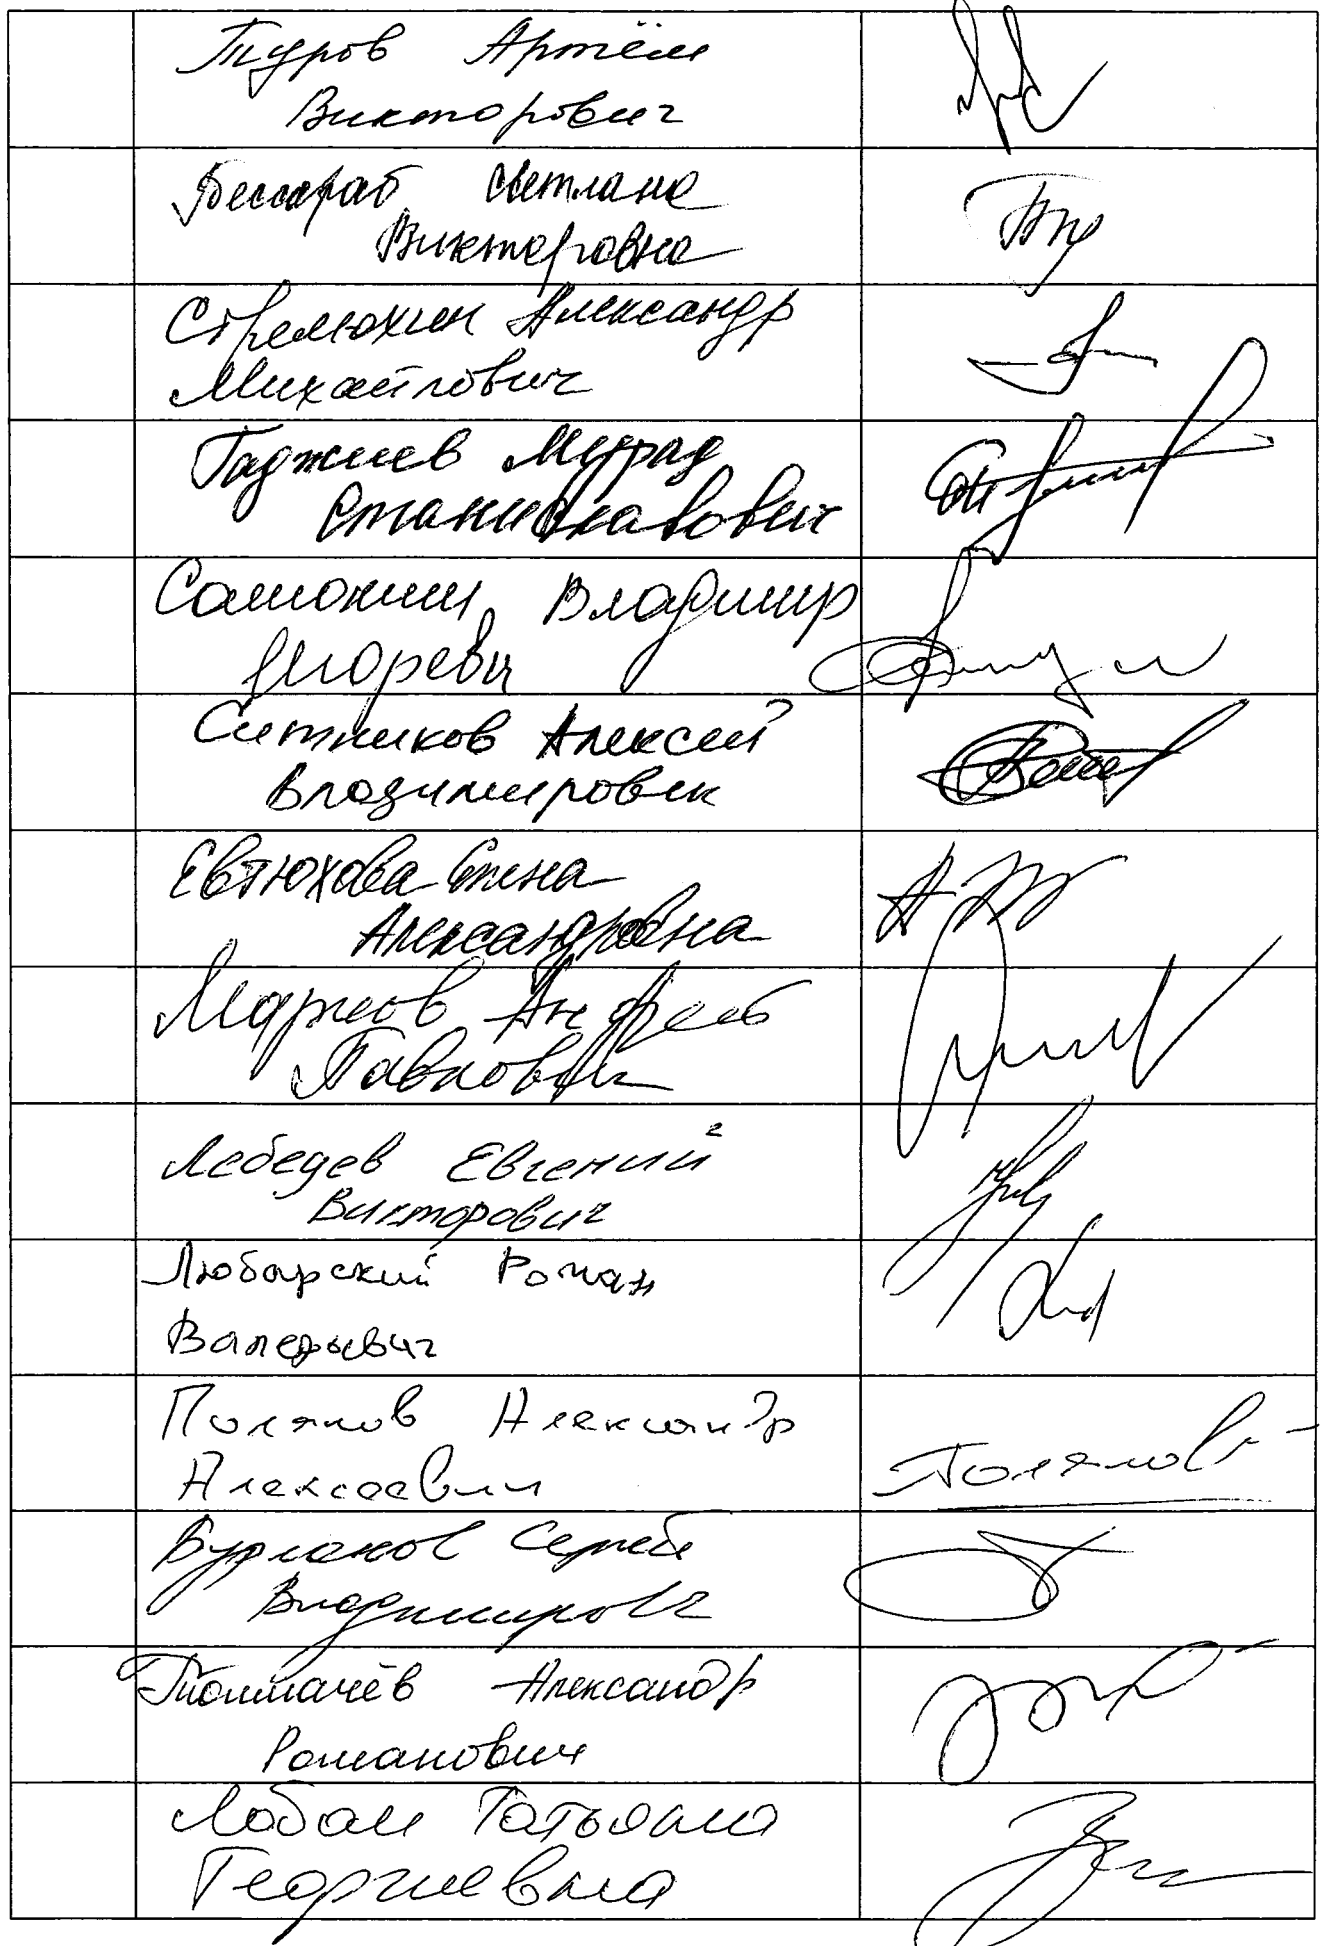 Туров Артём
Викторович
Бессараб Светлана
Викторовна
Стрелюхин Александр
Михайлович
Гаджиев Мурад
Станиславович
Самокиш Владимир
Игоревич
Ситников Алексей
Владимирович
Евтюхова Елена
Александровна
Марков Андрей
Павлович
Лебедев Евгений
Викторович
Любарский Роман
Валерьевич
Поляков Александр
Алексеевич
Бурлаков Сергей
Владимирович
Толмачёв Александр
Романович
Лобач Татьяна
Георгиевна